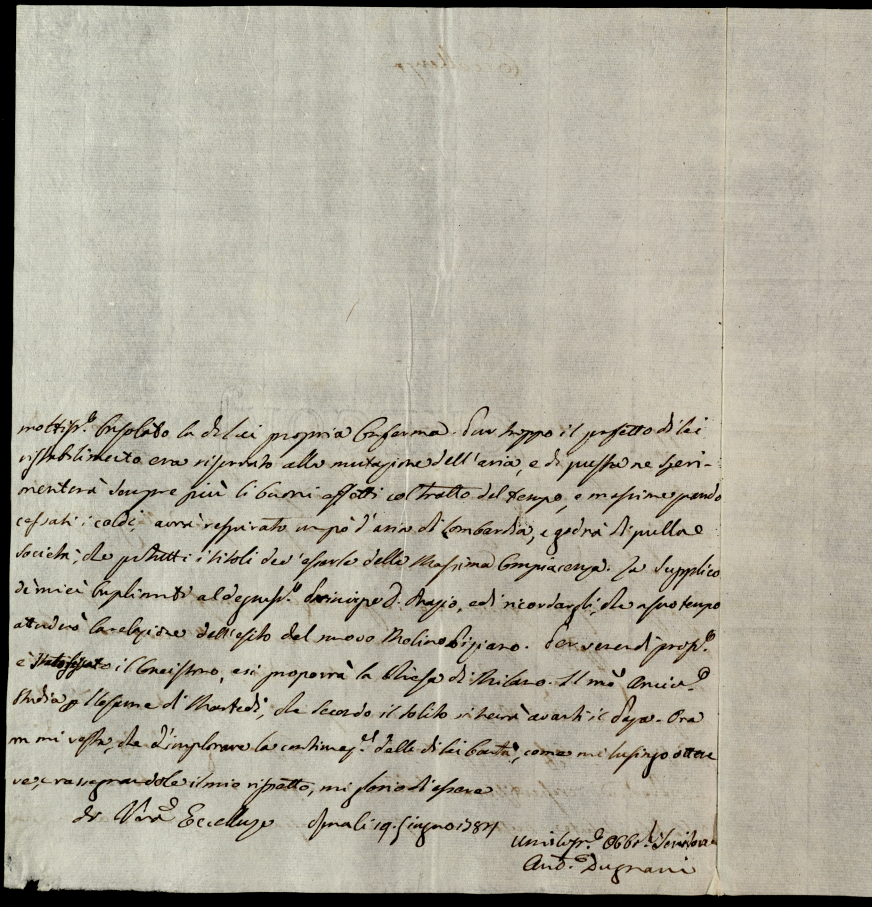 moltiss.o consolato la di lei propria conferma. Pur troppo il perfetto di lei
ristabilimento era riservato alla mutazione dell'aria, e di questa ne speri-
menterà sempre più li buoni effetti col tratto del tempo, e massime quando
cessati i caldi, avrà respirato un pò d'aria di Lombardia, e godrà di quella
società, che per tutti i titoli dev'esserle della massima compiacenza. La supplico
de miei complimenti al degniss.o Principe D. e di ricordargli, che a suo tempo
attenderò la relazione dell'esito del nuovo Molino Per venerdì pross.o
è il Concistoro, e si proporrà la Chiesa di Milano. Il
studia p l'esame di Martedì, che secondo il solito si terrà avanti il Papa. Ora
non mi resta, che d'implorare la continuaz.e delle di lei bontà, come mi lusingo ottene
re, e rassegnandole il mio rispetto, mi glorio d'essere
di Vra Eccellenza 19. Giugno 1784
umiliss.o Obbl.o Servitore
And.a Dugnani